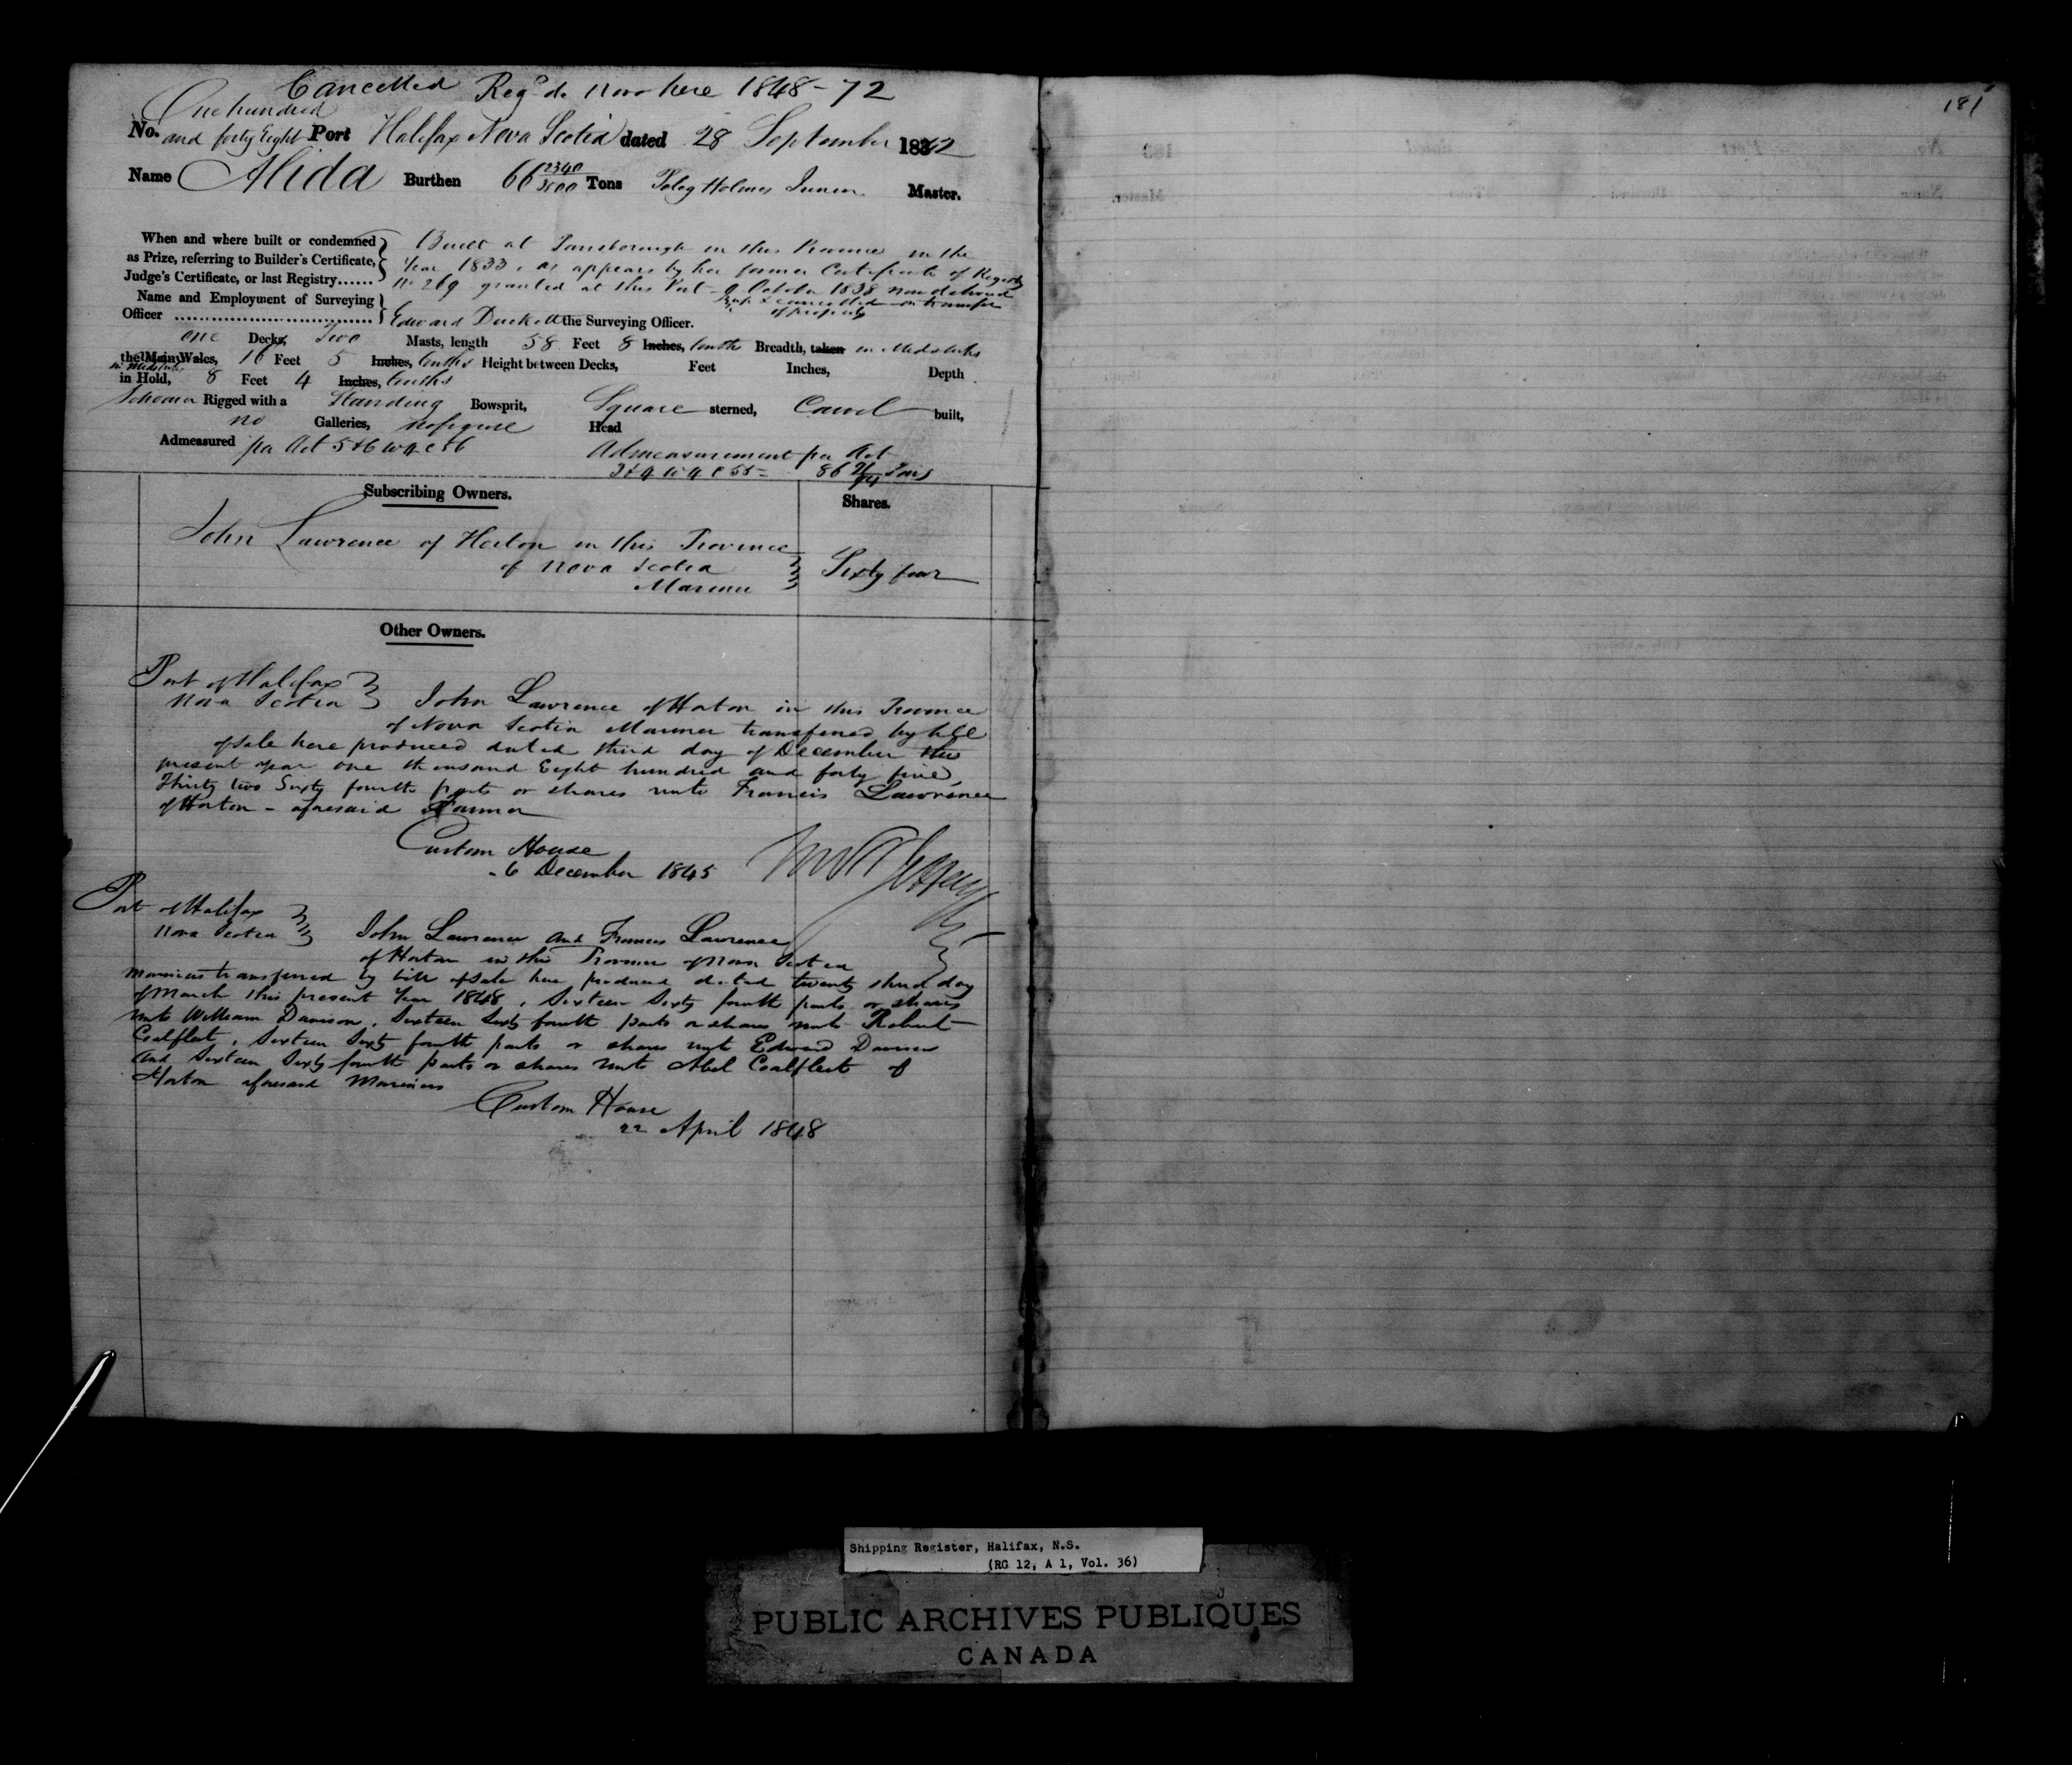 Cancelled Regd de novo here 1848-72
181
One hundred
No. and forty Eight Port Halifax Nova Scotia dated 28 September 1842
Name Alida Burthen 66 2340/3500 Tons Peleg Holmes Junior Master.
When and where built or condemned as Prize, referring to Builder's Certificate, Judge's Certificate, or last Registry......
Built at Parrsborough in this Province in the
Year 1833, as appears by her former Certificate of Registry
No 269 granted at this Port 9 October 1838 now delivered
up & cancelled on transfer
of property
Name and Employment of Surveying Officer
Edward Duckett the Surveying Officer.
one Decks, Two Masts, length 58 Feet 8 Inches, tenths Breadth, taken in Midships
the Main Wales, 16 Feet 5 Inches, tenths Height between Decks, Feet Inches, Depth
in Midships
in Hold, 8 Feet 4 Inches, tenths
Schooner Rigged with a Standing Bowsprit, Square sterned, Carvel built,
no Galleries, no figure Head
Admeasured per Act 5 & 6 W 4 C 56 Admeasurement per Act
3 & 4 W 4 C 55 = 86 Tons
Subscribing Owners. Shares.
John Lawrence of Horton in this Province
of Nova Scotia
Mariner
Sixty four
Other Owners.
Port of Halifax
Nova Scotia John Lawrence of Horton in this Province
of Nova Scotia Mariner transferred by bill
of sale here produced dated third day of December this
present year one thousand Eight hundred and forty five,
Thirty two Sixty fourth parts or shares unto Francis Lawrence
of Horton - aforesaid Farmer
Custom House
6 December 1845
Port of Halifax
Nova Scotia John Lawrence and Francis Lawrence
of Horton in this Province of Nova Scotia
mariners transferred by bill of sale here produced dated twenty third day
of March this present Year 1848, Sixteen Sixty fourth parts or shares
unto William Davison, Sixteen Sixty fourth parts or shares unto Robert
Coalfleet, Sixteen Sixty fourth parts or shares unto Edward Davison
and Sixteen Sixty fourth parts or shares unto Abel Coalfleet of
Horton aforesaid Mariners
Custom House
22 April 1848
Shipping Register, Halifax, N.S.
(RG 12, A 1, Vol. 36)
PUBLIC ARCHIVES PUBLIQUES
CANADA